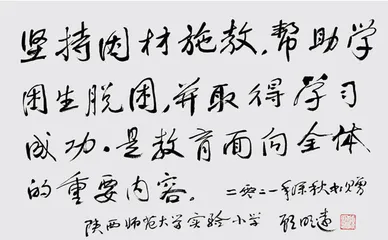 坚持因材施教，帮助学
困生脱困，并取得学习
成功。是教育面向全体
的重要内容。 二〇二一年深秋书赠
陕西师范大学实验小学 顾明远